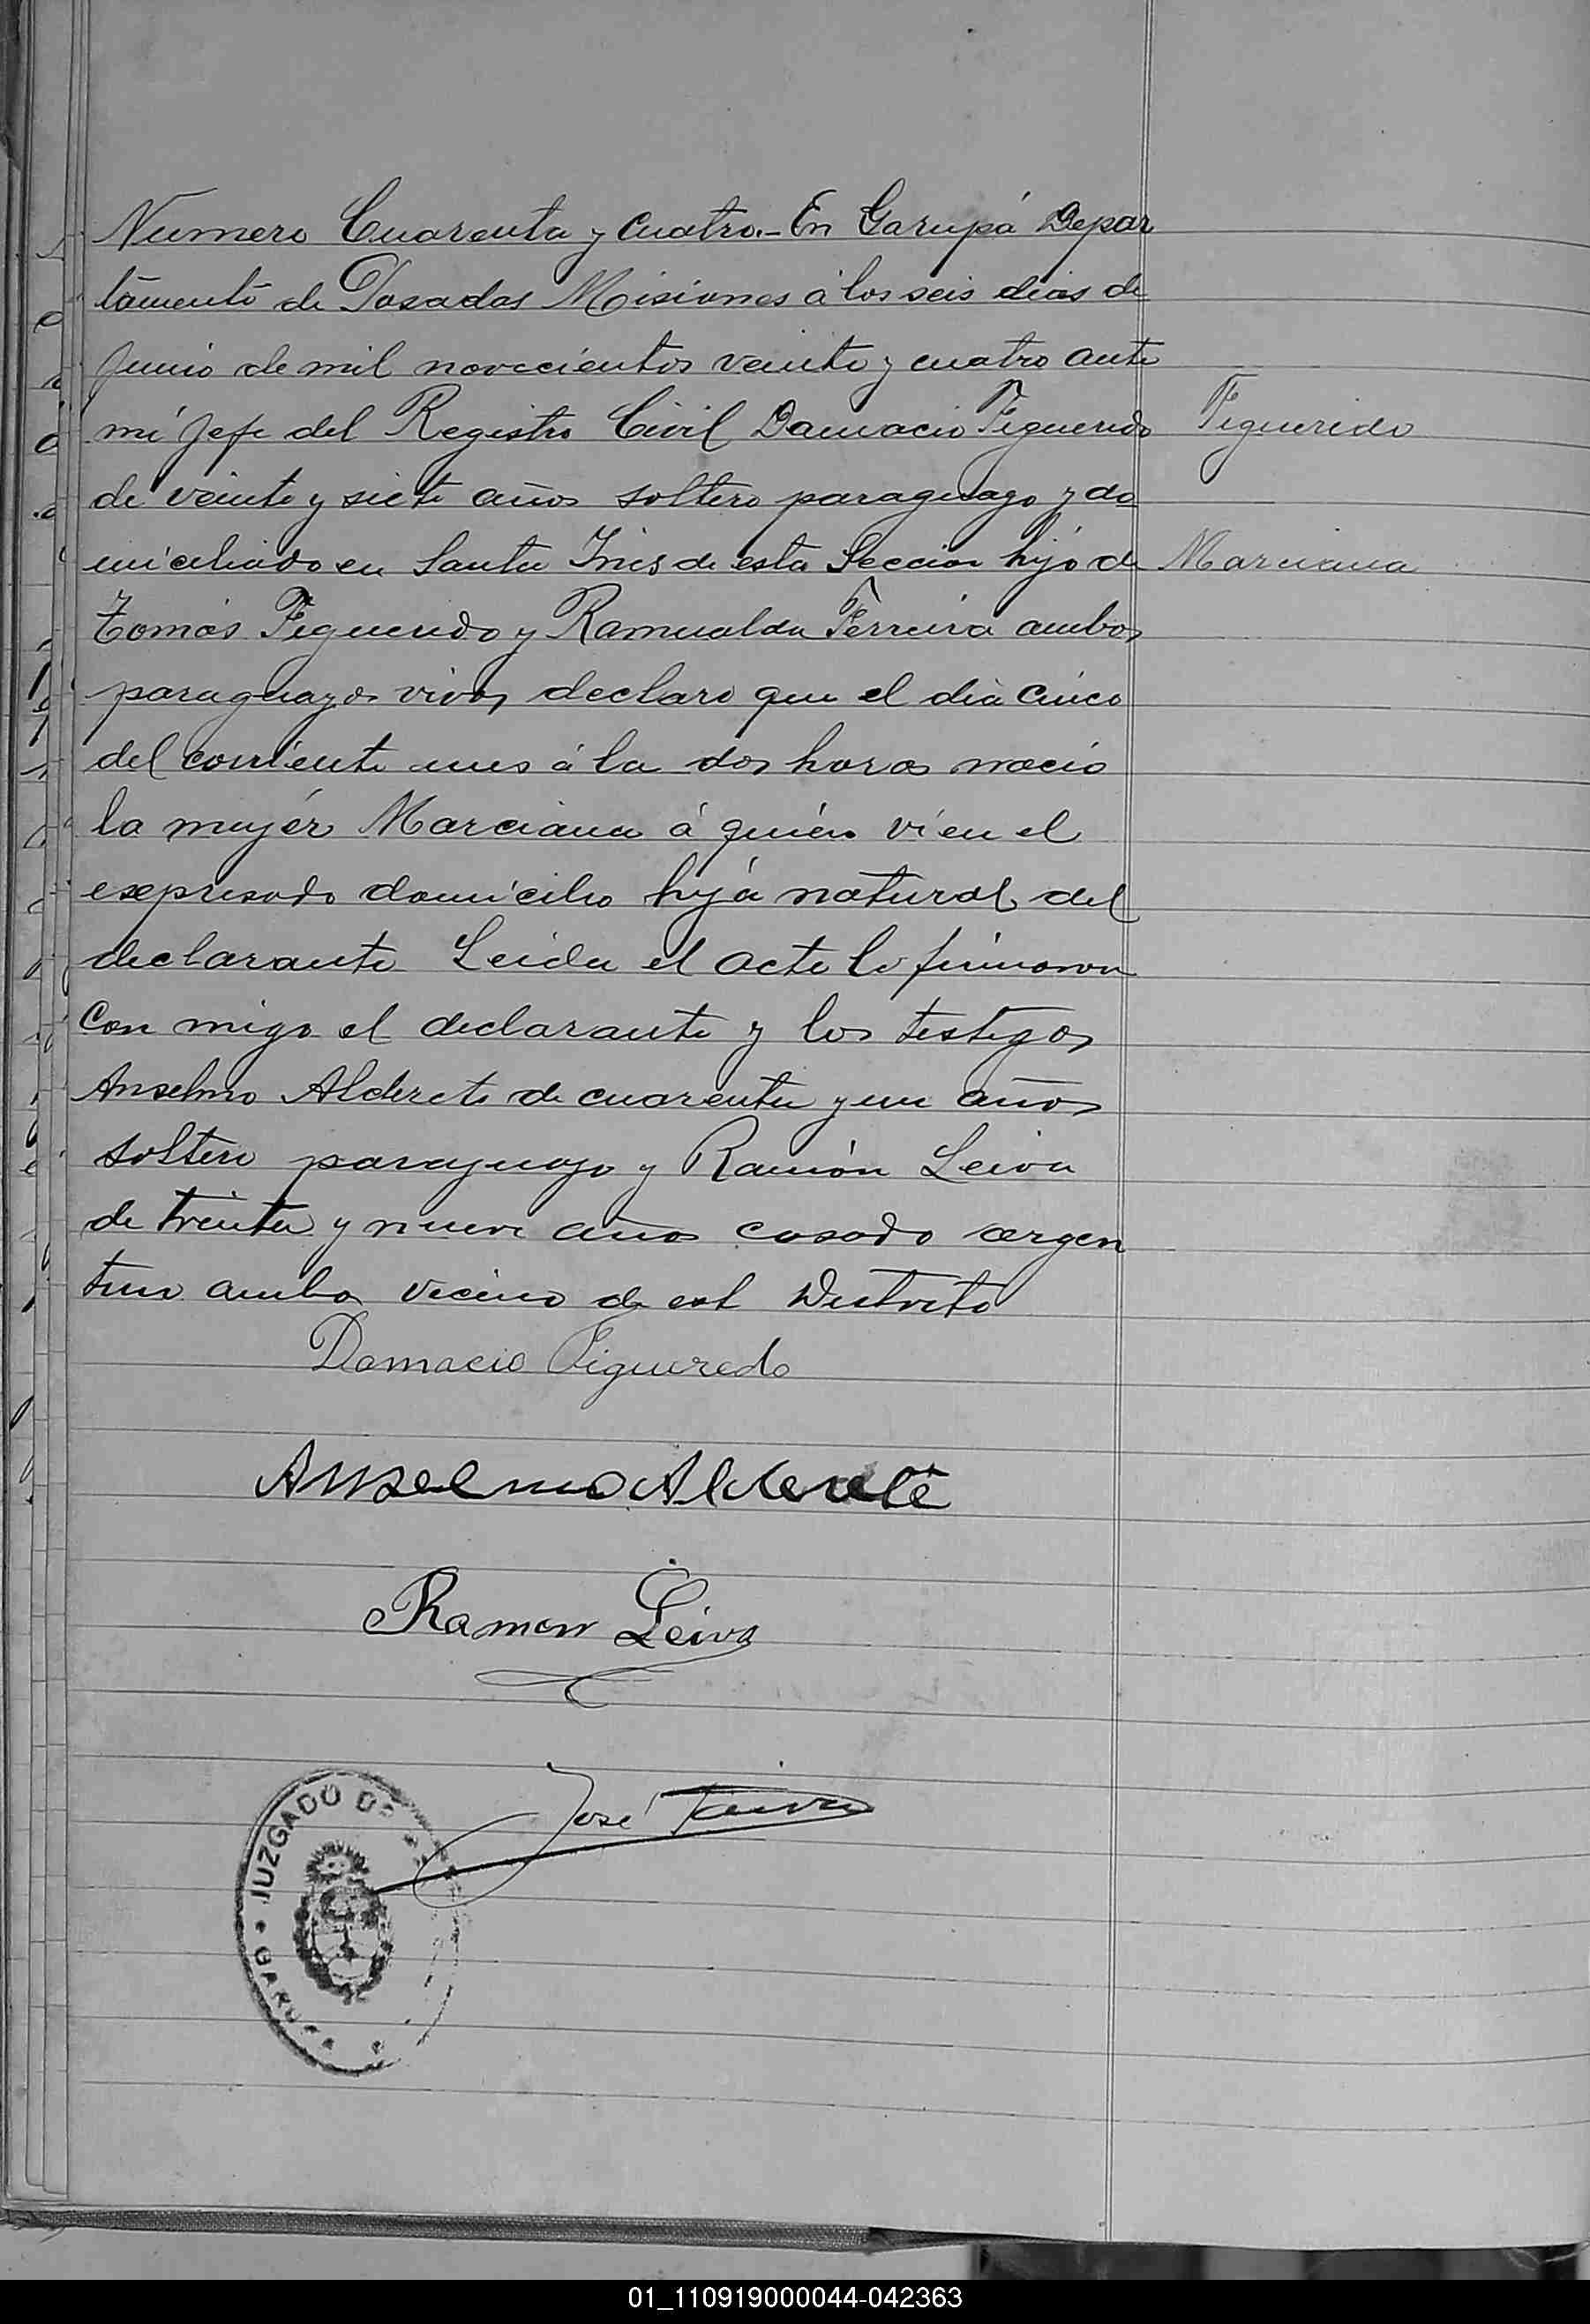 Numero Cuarenta y cuatro.- En Garupá Depar
tamento de Posadas Misiones á los seis dias de
Junio de mil novecientos veinte y cuatro ante
mi Jefe del Registro Civil Damacio Figueredo
Figueredo
de veinte y siete años soltero paraguayo y do
miciliado en Santa Inés de esta Seccion hijo de
Marciana
Tomás Figueredo y Ramualda Ferreira ambos
paraguayos vivos declaro que el dia cinco
del corriente mes á la dos horas nacio
la mujer Marciana á quién ví en el
esepresado domicilio hija natural del
declarante Leida el acta lo firmaron
con migo el declarante y los testigos
Anselmo Alderete de cuarenta y un años
soltero paraguayo y Ramón Leiva
de treinta y nueve años casado argen
tino ambos vecino de est Distrito
Damacio Figueredo
Anselmo Alderete
Ramon Leiva
José
JUZGADO DE
GARUPA
01_110919000044-042363